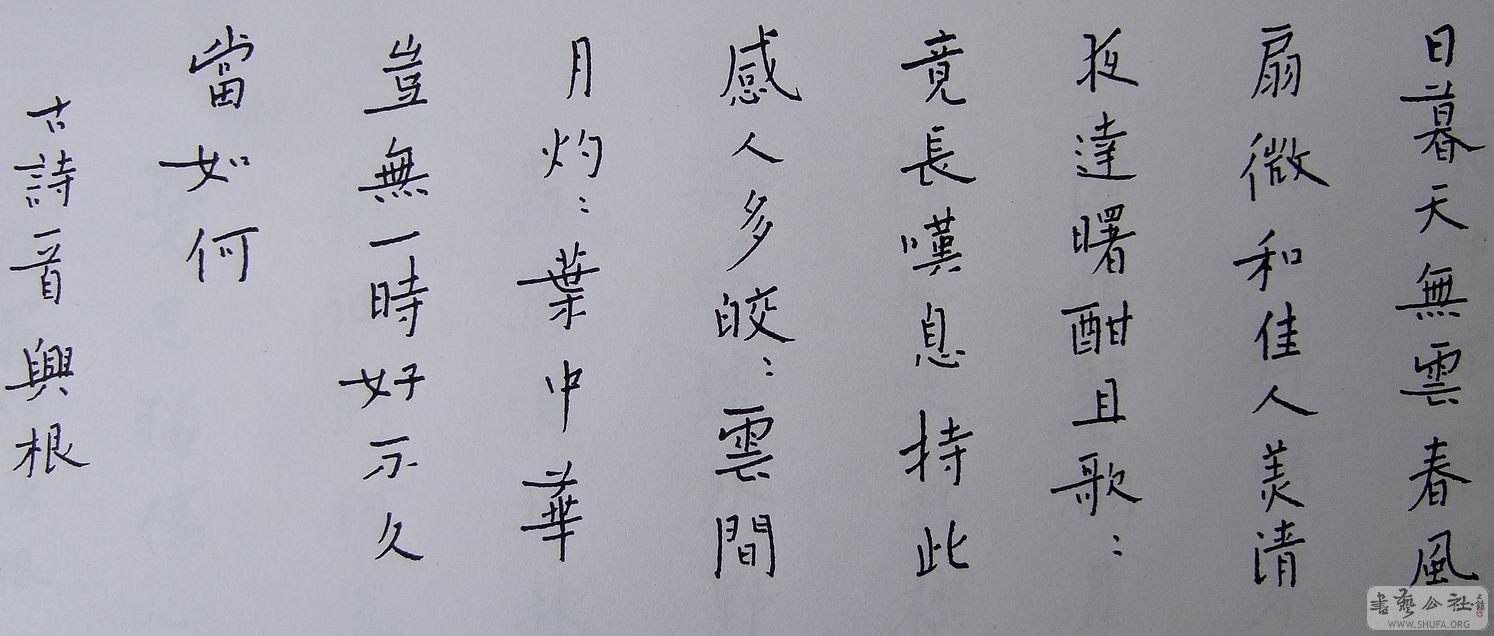 日暮天無雲春風
扇微和佳人美清
夜達曙酣且歌:
竟長嘆息持此
感人多皎:雲間
月灼:葉中華
豈無一時好不久
當如何
古詩一首興根
書藝公社
WWW.SHUFA.ORG